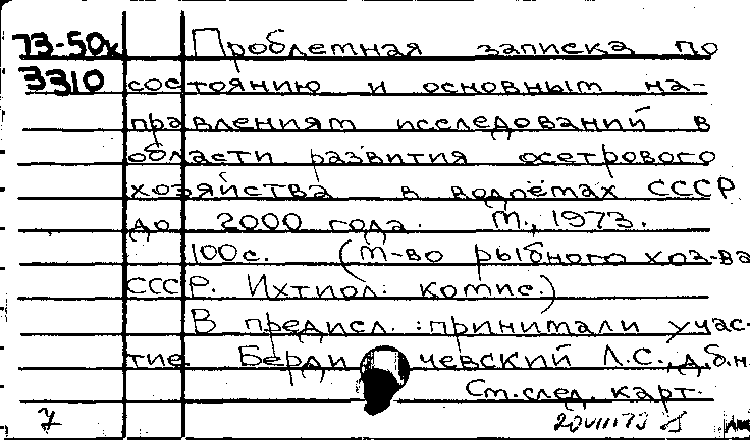 73-50к Проблемная записка по
3310 состоянию и основным на-
правлениям исследований в
области развития осетрового
хозяйства в водоёмах СССР
до 2000 года. М., 1973.
100с. (М-во рыбного хоз-ва
СССР. Ихтиол. комис.)
В предисл.: принимали учас-
тие Бердичевский Л.С., д.б.н
См. след. карт.
7 20VIII73